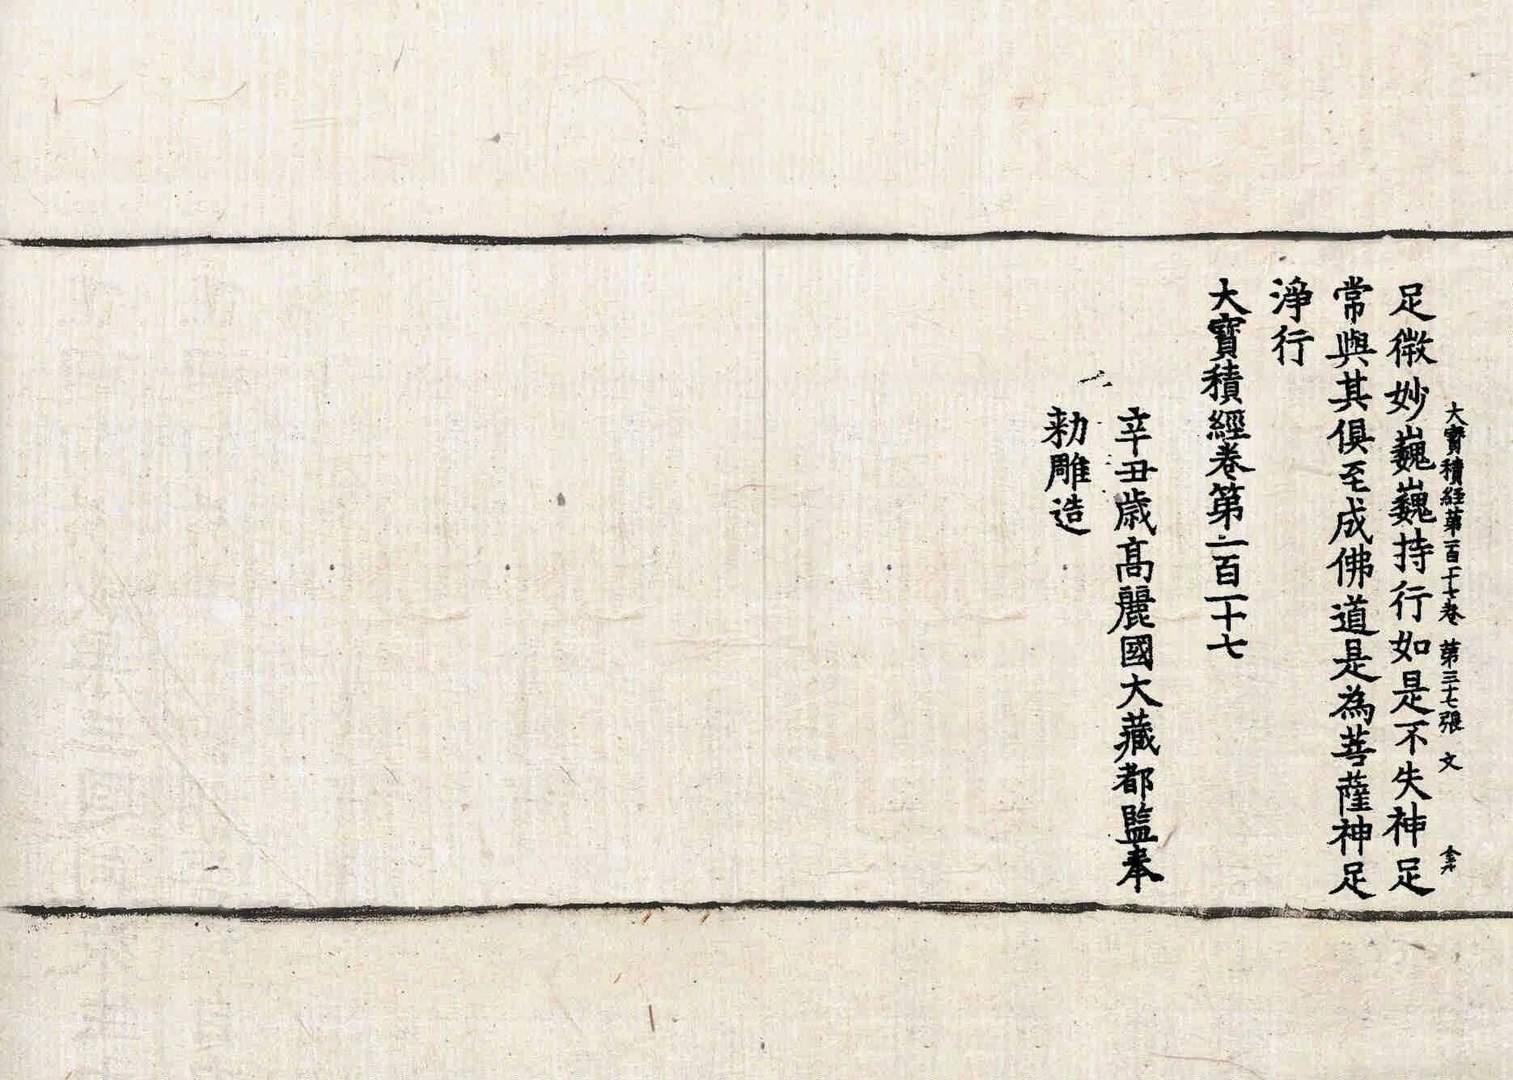 大寶積經第一百一十七卷 第三十七張 文
足微妙巍巍持行如是不失神足
常與其俱至成佛道是為菩薩神足
淨行
大寶積經卷第一百一十七
辛丑歲高麗國大藏都監奉
勅雕造